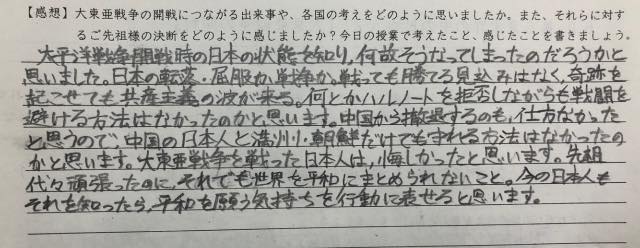 【感想】大東亜戦争の開戦につながる出来事や、各国の考えをどのように思いましたか。また、それらに対す
るご先祖様の決断をどのように感じましたか？今日の授業で考えたこと、感じたことを書きましょう。
太平洋戦争開戦時の日本の状態を知り、何故そうなってしまったのだろうかと
思いました。日本の転落・屈服か、戦争か。戦っても勝てる見込みはなく、奇跡を
起こせても共産主義の波が来る。何とかハルノートを拒否しながらも戦闘を
避ける方法はなかったのかと思います。中国から撤退するのも、仕方なかった
と思うので、中国の日本人と満州・朝鮮だけでも守れる方法はなかったの
かと思います。大東亜戦争を戦った日本人は、悔しかったと思います。先祖
代々頑張ったのに、それでも世界を平和にまとめられないこと。今の日本人も
それを知ったら、平和を願う気持ちを行動に表せると思います。